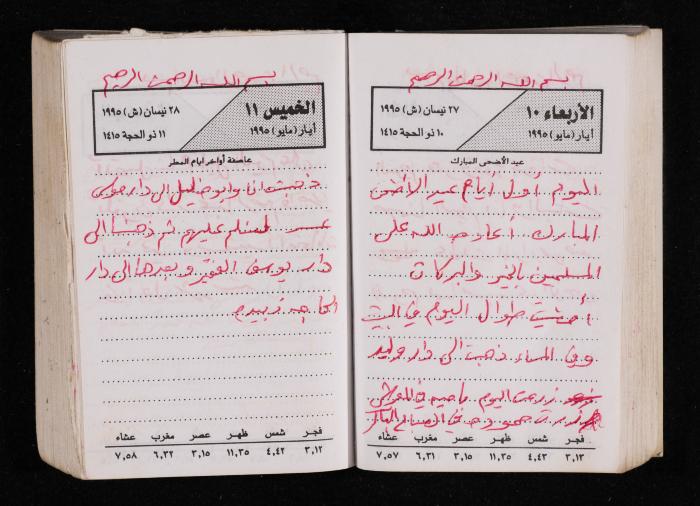 بسم الله الرحمن الرحيم
الأربعاء ١٠
أيار (مايو) ١٩٩٥
٢٧ نيسان (ش) ١٩٩٥
١٠ ذو الحجة ١٤١٥
عيد الأضحى المبارك
اليوم أول أيام عيد الأضحى
المبارك أعاده الله على
المسلمين بالخير والبركات
أمضيت طوال اليوم في البيت
وفي المساء ذهبت الى دار وليد
زرعت اليوم
في المساء
فجر شمس ظهر عصر مغرب عشاء
٣,١٣ ٤,٤٣ ١١,٣٥ ٣,١٥ ٦,٣١ ٧,٥٧
بسم الله الرحمن الرحيم
الخميس ١١
أيار (مايو) ١٩٩٥
٢٨ نيسان (ش) ١٩٩٥
١١ ذو الحجة ١٤١٥
عاصفة أواخر ايام المطر
ذهبت انا وابو خليل الى دار موسى
لنسلم عليهم ثم ذهبنا الى
دار يوسف الفقير وبعدها الى دار
الحاجه زبيده
فجر شمس ظهر عصر مغرب عشاء
٣,١٢ ٤,٤٢ ١١,٣٥ ٣,١٥ ٦,٣٢ ٧,٥٨